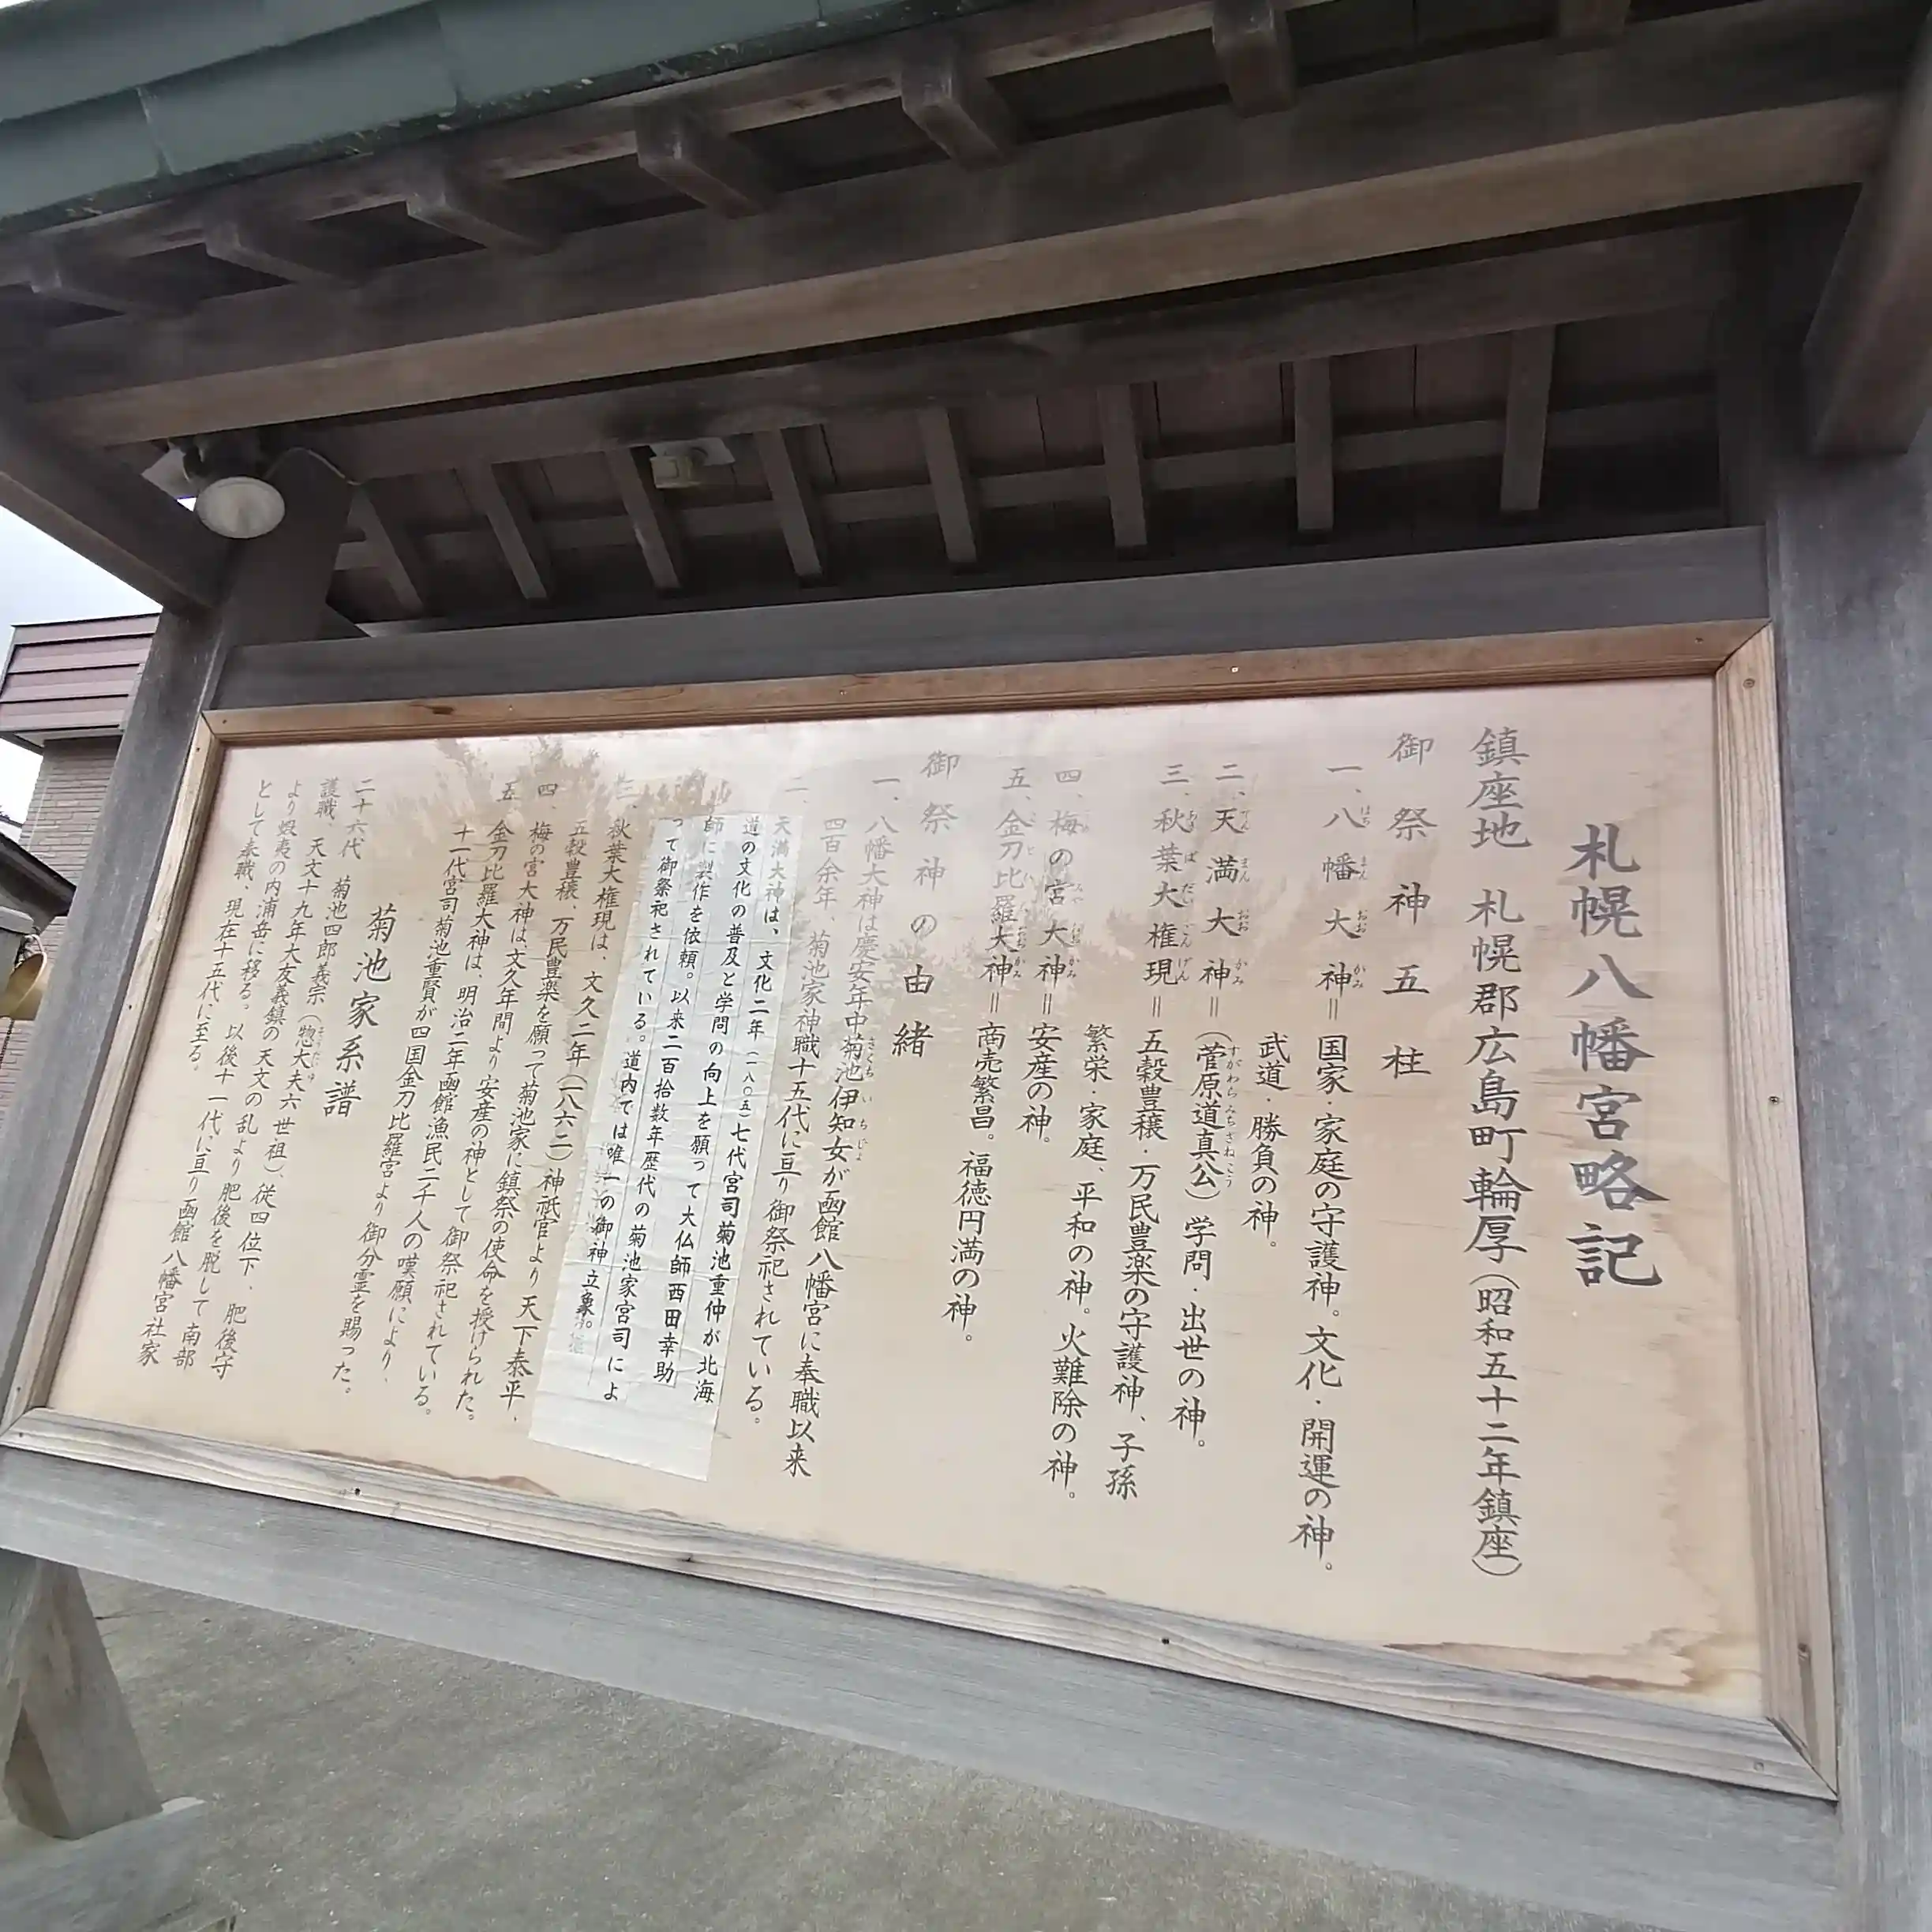 札幌八幡宮略記
鎮座地 札幌郡広島町輪厚（昭和五十二年鎮座）
御祭神五柱
一、八幡大神＝国家・家庭の守護神。文化・開運の神。
武道・勝負の神。
二、天満大神＝（菅原道真公）学問・出世の神。
三、秋葉大権現＝五穀豊穣・万民豊楽の守護神、子孫
繁栄・家庭、平和の神。火難除の神。
四、梅の宮大神＝安産の神。
五、金刀比羅大神＝商売繁昌。福徳円満の神。
御祭神の由緒
一、八幡大神は慶安年中菊池伊知女が函館八幡宮に奉職以来
四百余年、菊池家神職十五代に亘り御祭祀されている。
二、天満大神は、文化二年（一八〇五）七代宮司菊池重仲が北海
道の文化の普及と学問の向上を願って大仏師西田幸助
師に製作を依頼。以来二百拾数年歴代の菊池家宮司によ
って御祭祀されている。道内では唯一の御神立象。
三、秋葉大権現は、文久二年（一八六二）神祇官より天下泰平、
五穀豊穣、万民豊楽を願って菊池家に鎮祭の使命を授けられた。
四、梅の宮大神は、文久年間より安産の神として御祭祀されている。
五、金刀比羅大神は、明治二年函館漁民二千人の嘆願により、
十一代宮司菊池重賢が四国金刀比羅宮より御分霊を賜った。
菊池家系譜
二十六代 菊池四郎義宗（惣大夫六世祖）、従四位下、肥後守
護職、天文十九年大友義鎮の天文の乱より肥後を脱して南部
より蝦夷の内浦岳に移る。以後十一代に亘り函館八幡宮社家
として奉職、現在十五代に至る。